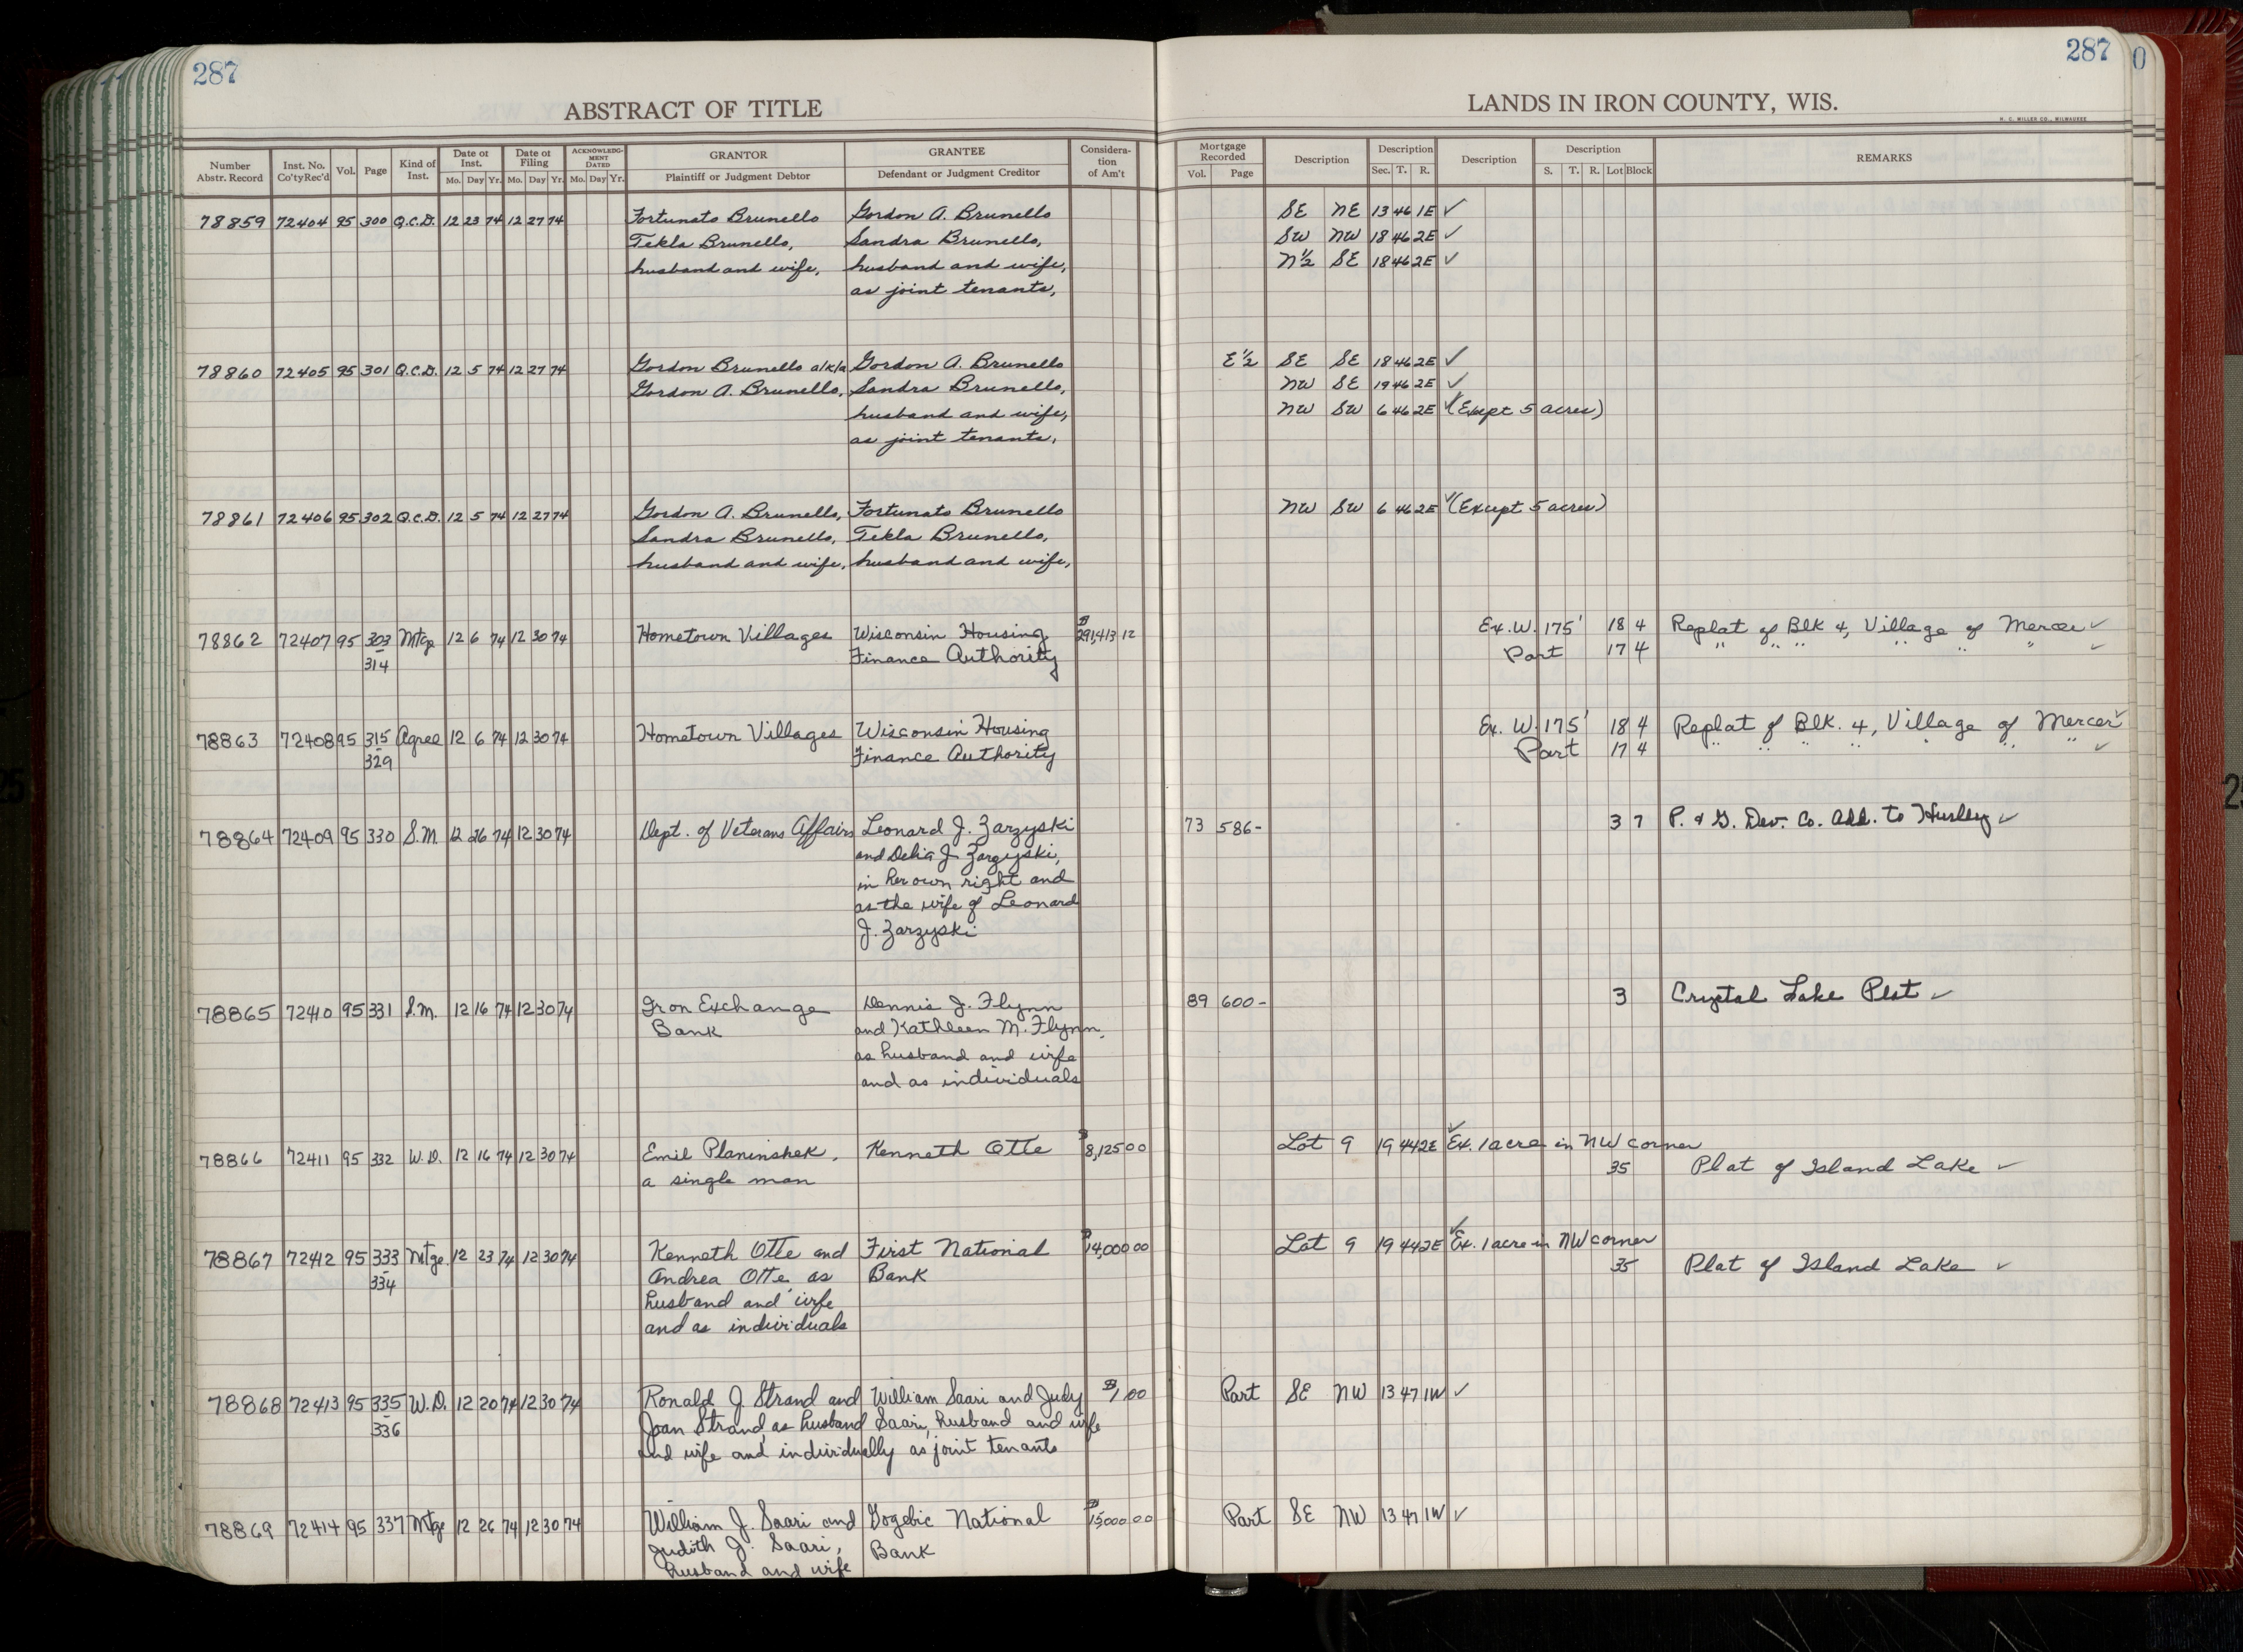 287
287
0
ABSTRACT OF TITLE
LANDS IN IRON COUNTY, WIS.
H. C. MILLER CO., MILWAUKEE
Number Abstr. Record | Inst. No. Co'ty Rec'd | Vol. | Page | Kind of Inst. | Date of Inst. Mo. Day Yr. | Date of Filing Mo. Day Yr. | ACKNOWLEDGMENT DATED Mo. Day Yr. | GRANTOR Plaintiff or Judgment Debtor | GRANTEE Defendant or Judgment Creditor | Consideration of Am't | Mortgage Recorded Vol. Page | Description | Description Sec. T. R. | Description | Description S. T. R. Lot Block | REMARKS
78859 72404 95 300 Q.C.D. 12 23 74 12 27 74 Fortunato Brunello Gordon A. Brunello SE NE 13 46 1E ✓
Tekla Brunello, Sandra Brunello, SW NW 18 46 2E ✓
husband and wife, husband and wife, N½ SE 18 46 2E ✓
as joint tenants,
78860 72405 95 301 Q.C.D. 12 5 74 12 27 74 Gordon Brunello a/k/a Gordon A. Brunello E½ SE SE 18 46 2E ✓
Gordon A. Brunello, Sandra Brunello, NW SE 19 46 2E ✓
husband and wife, NW SW 6 46 2E ✓ (Except 5 acres)
as joint tenants,
78861 72406 95 302 Q.C.D. 12 5 74 12 27 74 Gordon A. Brunello, Fortunato Brunello NW SW 6 46 2E ✓ (Except 5 acres)
Sandra Brunello, Tekla Brunello,
husband and wife, husband and wife,
78862 72407 95 303 Mtge 12 6 74 12 30 74 Hometown Villages Wisconsin Housing $291,413 12 Ex. W. 175' 18 4 Replat of Blk 4, Village of Mercer ✓
314 Finance Authority Part 17 4 " " " " " " ✓
78863 72408 95 315 Agree 12 6 74 12 30 74 Hometown Villages Wisconsin Housing Ex. W. 175' 18 4 Replat of Blk. 4, Village of Mercer ✓
329 Finance Authority Part 17 4 " " " " " " " ✓
78864 72409 95 330 S.M. 12 26 74 12 30 74 Dept. of Veterans Affairs Leonard J. Zarzyski 73 586- 3 7 P. & G. Dev. Co. Add. to Hurley ✓
and Delia J. Zarzyski,
in her own right and
as the wife of Leonard
J. Zarzyski
78865 72410 95 331 S.M. 12 16 74 12 30 74 Iron Exchange Dennis J. Flynn 89 600- 3 Crystal Lake Plat ✓
Bank and Kathleen M. Flynn,
as husband and wife
and as individuals
78866 72411 95 332 W.D. 12 16 74 12 30 74 Emil Planinshek, Kenneth Otte $8,125 00 Lot 9 19 44 2E ✓ Ex. 1 acre in NW corner
a single man 35 Plat of Island Lake ✓
78867 72412 95 333 Mtge. 12 23 74 12 30 74 Kenneth Otte and First National $14,000 00 Lot 9 19 44 2E ✓ Ex. 1 acre in NW corner
334 Andrea Otte as Bank 35 Plat of Island Lake ✓
husband and wife
and as individuals
78868 72413 95 335 W.D. 12 20 74 12 30 74 Ronald J Strand and William Saari and Judy $1.00 Part SE NW 13 47 1W ✓
336 Joan Strand, as husband Saari, husband and wife
and wife and individually as joint tenants
78869 72414 95 337 Mtge 12 26 74 12 30 74 William J. Saari and Gogebic National $15,000 00 Part SE NW 13 47 1W ✓
Judith J. Saari, Bank
husband and wife